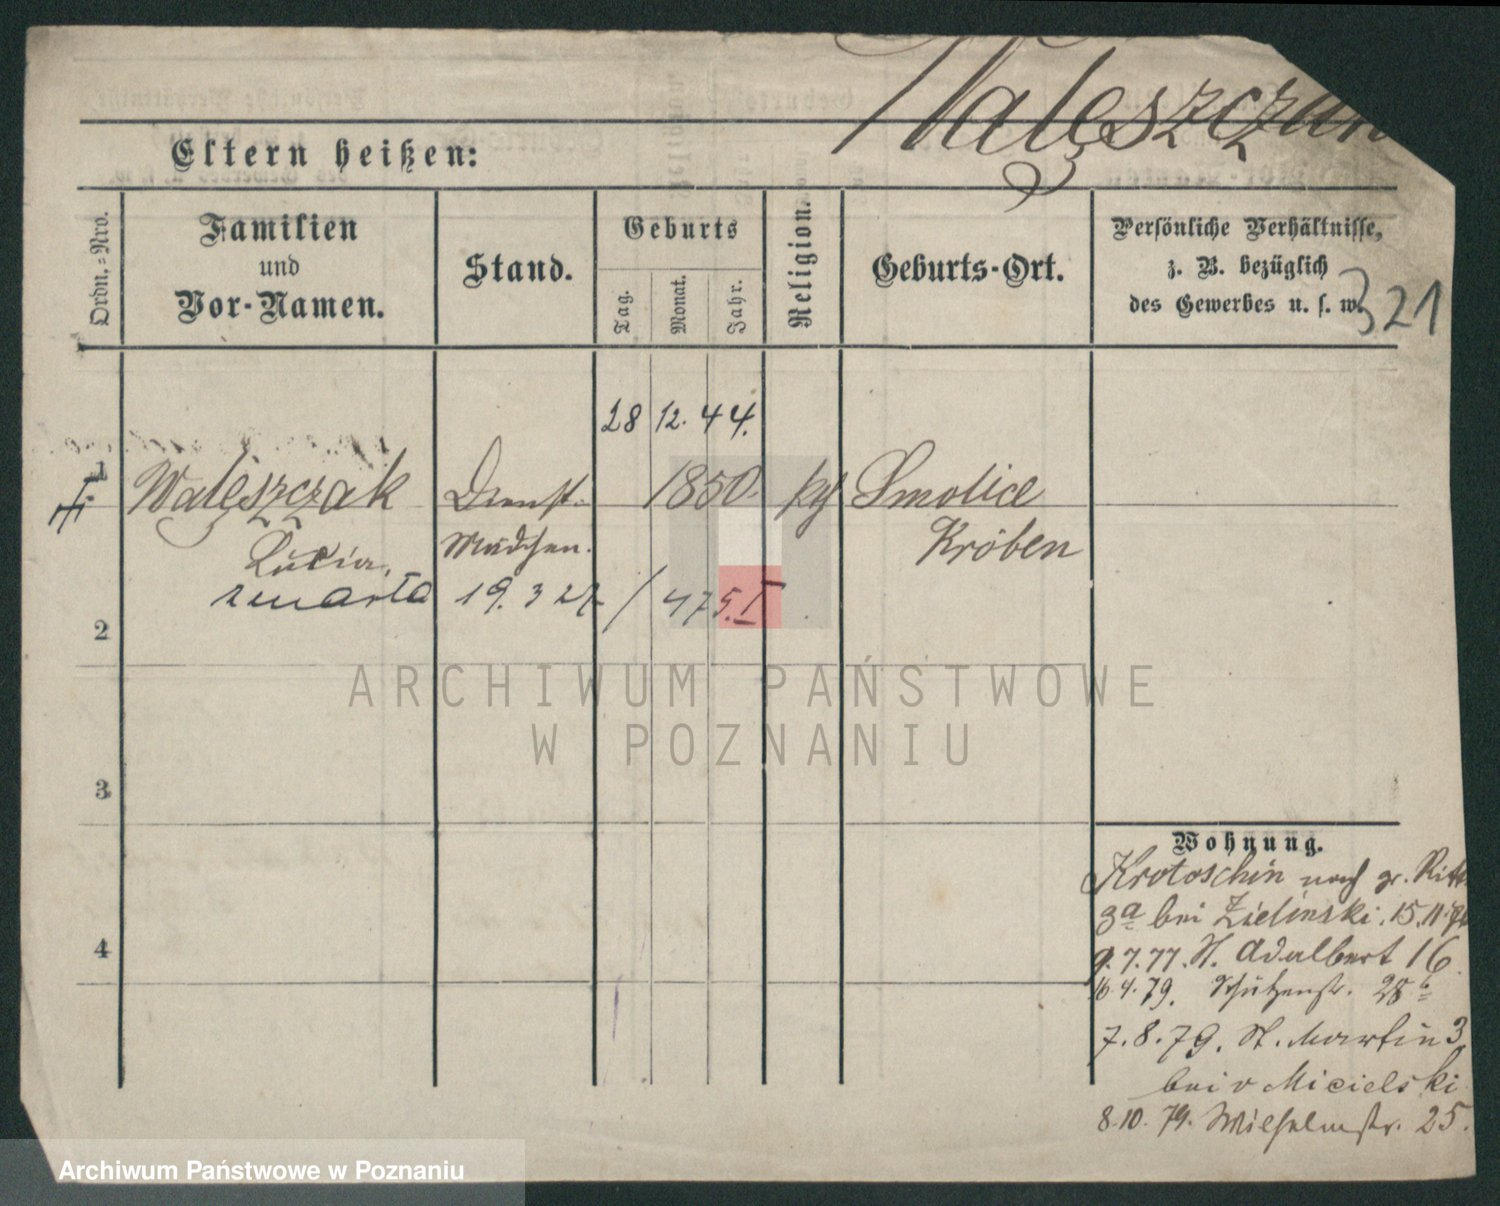 Waleszczak
Eltern heißen:
Ordn.-Nro.
Familien
und
Vor-Namen.
Stand.
Geburts
Tag.
Monat.
Jahr.
Religion.
Geburts-Ort.
Persönliche Verhältnisse,
z. B. bezüglich
des Gewerbes u. s. w.
321
28 12. 44.
1 Waleszczak Dienst- 1850. kth Smolice
Lucia, Mädchen. Kröben
zmarła 19. 3 27 / 475.I
2
3
4
ARCHIWUM PAŃSTWOWE
W POZNANIU
Wohnung.
Krotoschin nach gr. Ritt
3a bei Zielinski. 15.11.76
9.7.77. St. Adalbert 16
16.4.79. Schützenstr. 28b
7.8.79. St. Martin 3
bei v Micielski
8.10.79. Wilhelmstr. 25.
Archiwum Państwowe w Poznaniu